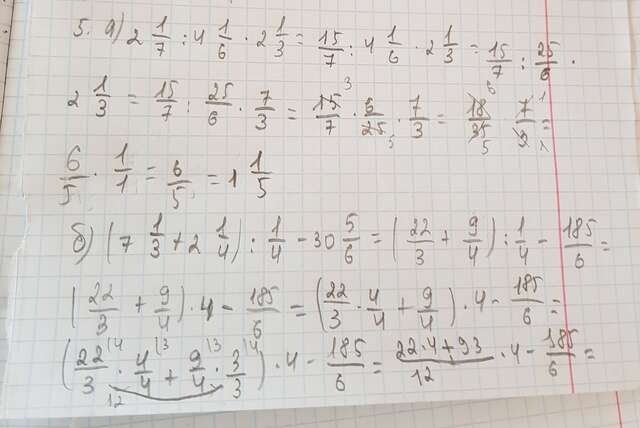 5. а) 2 1/7 : 4 1/6 · 2 1/3 = 15/7 : 4 1/6 · 2 1/3 = 15/7 : 25/6 ·
2 1/3 = 15/7 : 25/6 · 7/3 = 15/7 · 6/25 · 7/3 = 18/35 7/3 =
6/5 · 1/1 = 6/5 = 1 1/5
б) (7 1/3 + 2 1/4) : 1/4 - 30 5/6 = (22/3 + 9/4) : 1/4 - 185/6 =
(22/3 + 9/4) · 4 - 185/6 = (22/3 · 4/4 + 9/4) · 4 - 185/6 =
(22/3 · 4/4 + 9/4 · 3/3) · 4 - 185/6 = 22·4+93/12 · 4 - 185/6 =
12